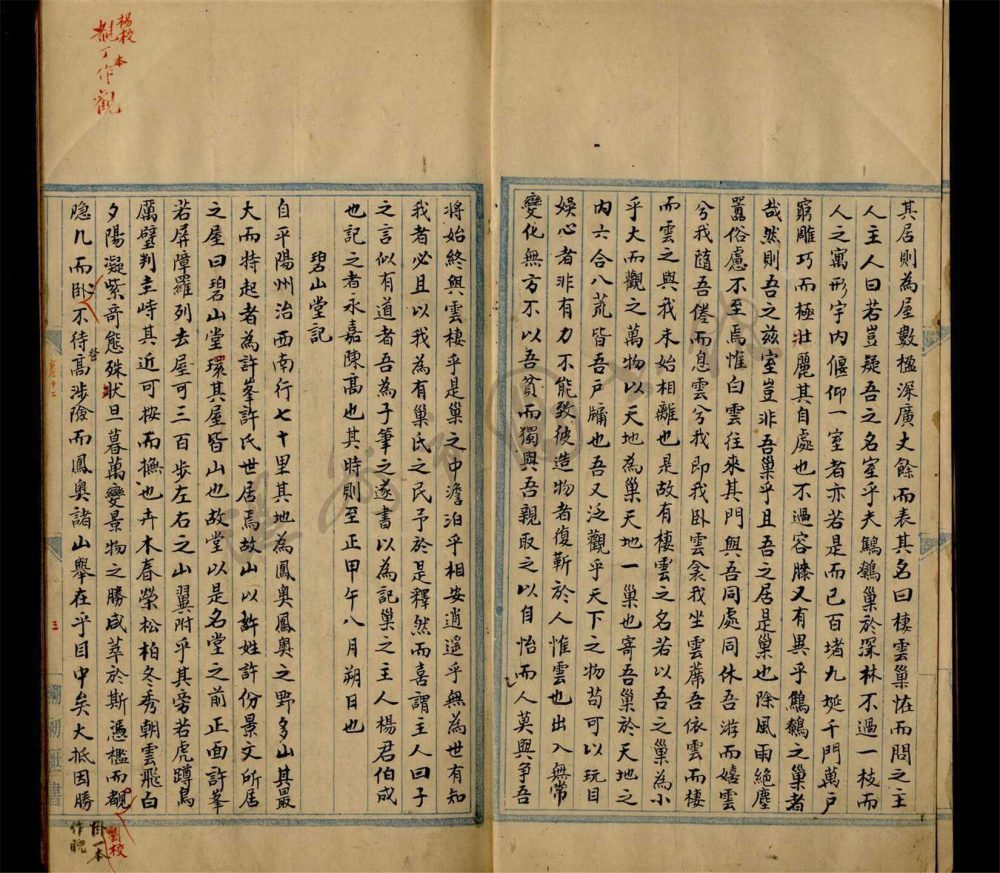 其居則為屋數楹深廣丈餘而表其名曰棲雲巢恠而問之主
人主人曰若豈疑吾之名室乎夫鷦鷯巢於深林不過一枝而
人之寓形宇內偃仰一室者亦若是而已百堵九筵千門萬戶
窮雕巧而極壯麗其自處也不過容膝又有異乎鷦鷯之巢者
哉然則吾之兹室豈非吾巢乎且吾之居是巢也除風雨絶塵
囂俗慮不至焉惟白雲往來其門與吾同處同休吾游而嬉雲
兮我隨吾倦而息雲兮我即我卧雲衾我坐雲席吾依雲而棲
而雲之與我未始相離也是故有棲雲之名若以吾之巢為小
乎大而觀之萬物以天地為巢天地一巢也寄吾巢於天地之
內六合八荒皆吾戶牖也吾又泛觀乎天下之物苟可以玩目
娛心者非有力不能致彼造物者復靳於人惟雲也出入無常
變化無方不以吾貧而獨與吾親取之以自怡而人莫與爭吾
將始終與雲棲乎是巢之中澹泊乎相安逍遥乎無為世有知
我者必且以我為有巢氏之民予於是釋然而喜謂主人曰子
之言似有道者吾為子筆之遂書以為記巢之主人楊君伯成
也記之者永嘉陳高也其時則至正甲午八月朔日也
碧山堂記
自平陽州治西南行七十里其地為鳳奧鳳奧之野多山其最
大而特起者為許峯許氏世居焉故山以許姓許份景文所居
之屋曰碧山堂環其屋皆山也故堂以是名堂之前正面許峯
若屏障羅列去屋可三百步左右之山翼附乎其旁若虎蹲鳥
厲璧判圭峙其近可按而撫也卉木春榮松柏冬秀朝雲飛白
夕陽凝紫奇態殊狀旦暮萬變景物之勝咸萃於斯憑檻而覩
隐几而卧不待髙涉險而鳳奧諸山舉在乎目中矣大抵因勝
楊校本
覩丁作觀
卷十二
三
卧一本
作晲